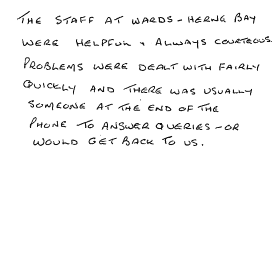 THE STAFF AT WARDS - HERNE BAY
WERE HELPFUL + ALWAYS COURTEOUS.
PROBLEMS WERE DEALT WITH FAIRLY
QUICKLY AND THERE WAS USUALLY
SOMEONE AT THE END OF THE
PHONE TO ANSWER QUERIES - OR
WOULD GET BACK TO US.